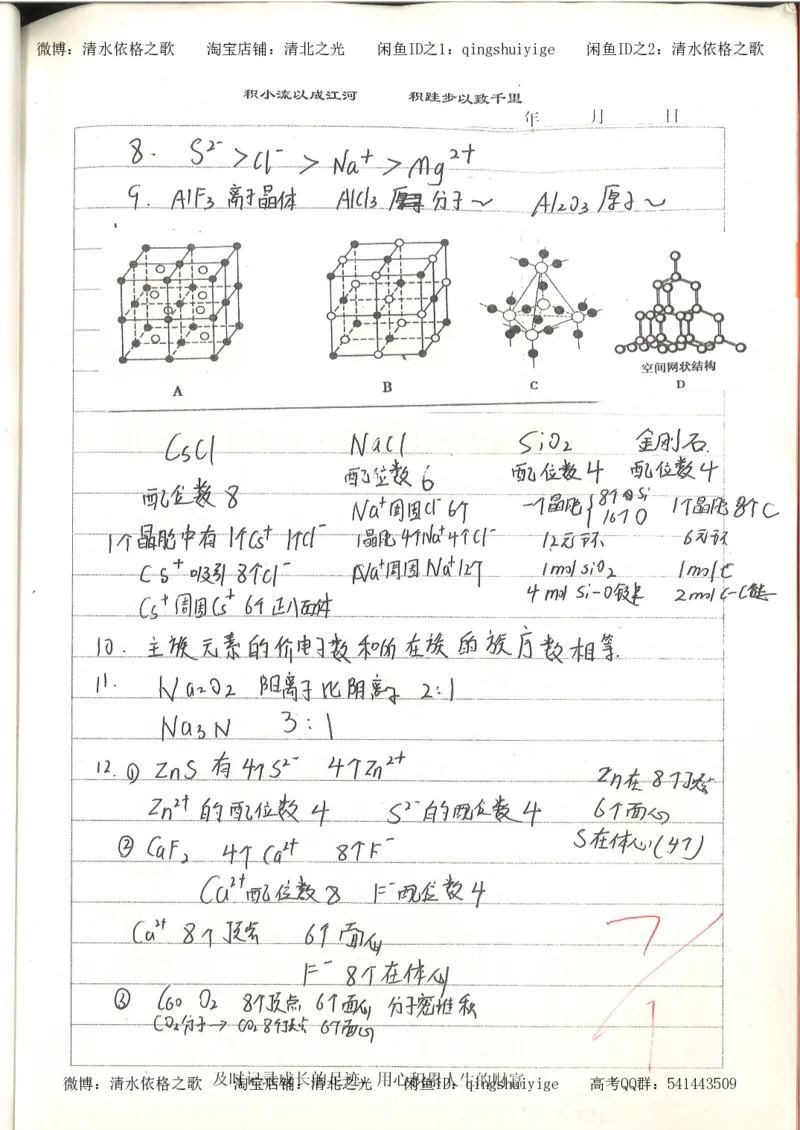 微博：清水依格之歌 淘宝店铺：清北之光 闲鱼ID之1：qingshuiyige 闲鱼ID之2：清水依格之歌
积小流以成江河 积跬步以致千里
年 月 日
8. S²⁻ > Cl⁻ > Na⁺ > Mg²⁺
9. AlF₃ 离子晶体 AlCl₃ 分子~ Al₂O₃ 原子~
空间网状结构
A B C D
CsCl NaCl SiO₂ 金刚石.
配位数 8 配位数 6 配位数 4 配位数 4
Na⁺周围Cl⁻ 6个 一个晶胞{8个Si 16个O 1个晶胞 8个C
1个晶胞中有 1个Cs⁺ 1个Cl⁻ 1晶胞 4个Na⁺4个Cl⁻ 12元环 6元环
Cs⁺吸引 8个Cl⁻ Na⁺周围Na⁺12个 1mol SiO₂ 1mol C
Cs⁺周围Cs⁺ 6个 正八面体 4 mol Si-O键 2mol C-C键
10. 主族元素的价电子数和所在族的族序数相等.
11. Na₂O₂ 阳离子比阴离子 2:1
Na₃N 3:1
12. ① ZnS 有 4个S²⁻ 4个Zn²⁺ Zn在 8个顶点
Zn²⁺ 的配位数 4 S²⁻的配位数 4 6个面心
S在体心(4个)
② CaF₂ 4个Ca²⁺ 8个F⁻
Ca²⁺配位数 8 F⁻配位数 4
Ca²⁺ 8个顶点 6个面心
F⁻ 8个在体心
③ C60 O₂ 8个顶点 6个面心 分子密堆积
CO₂分子→CO₂ 8个顶点 6个面心
及时记录成长的足迹，用心积累人生的财富
微博：清水依格之歌 淘宝店铺：清北之光 闲鱼ID之1：qingshuiyige 高考QQ群：541443509